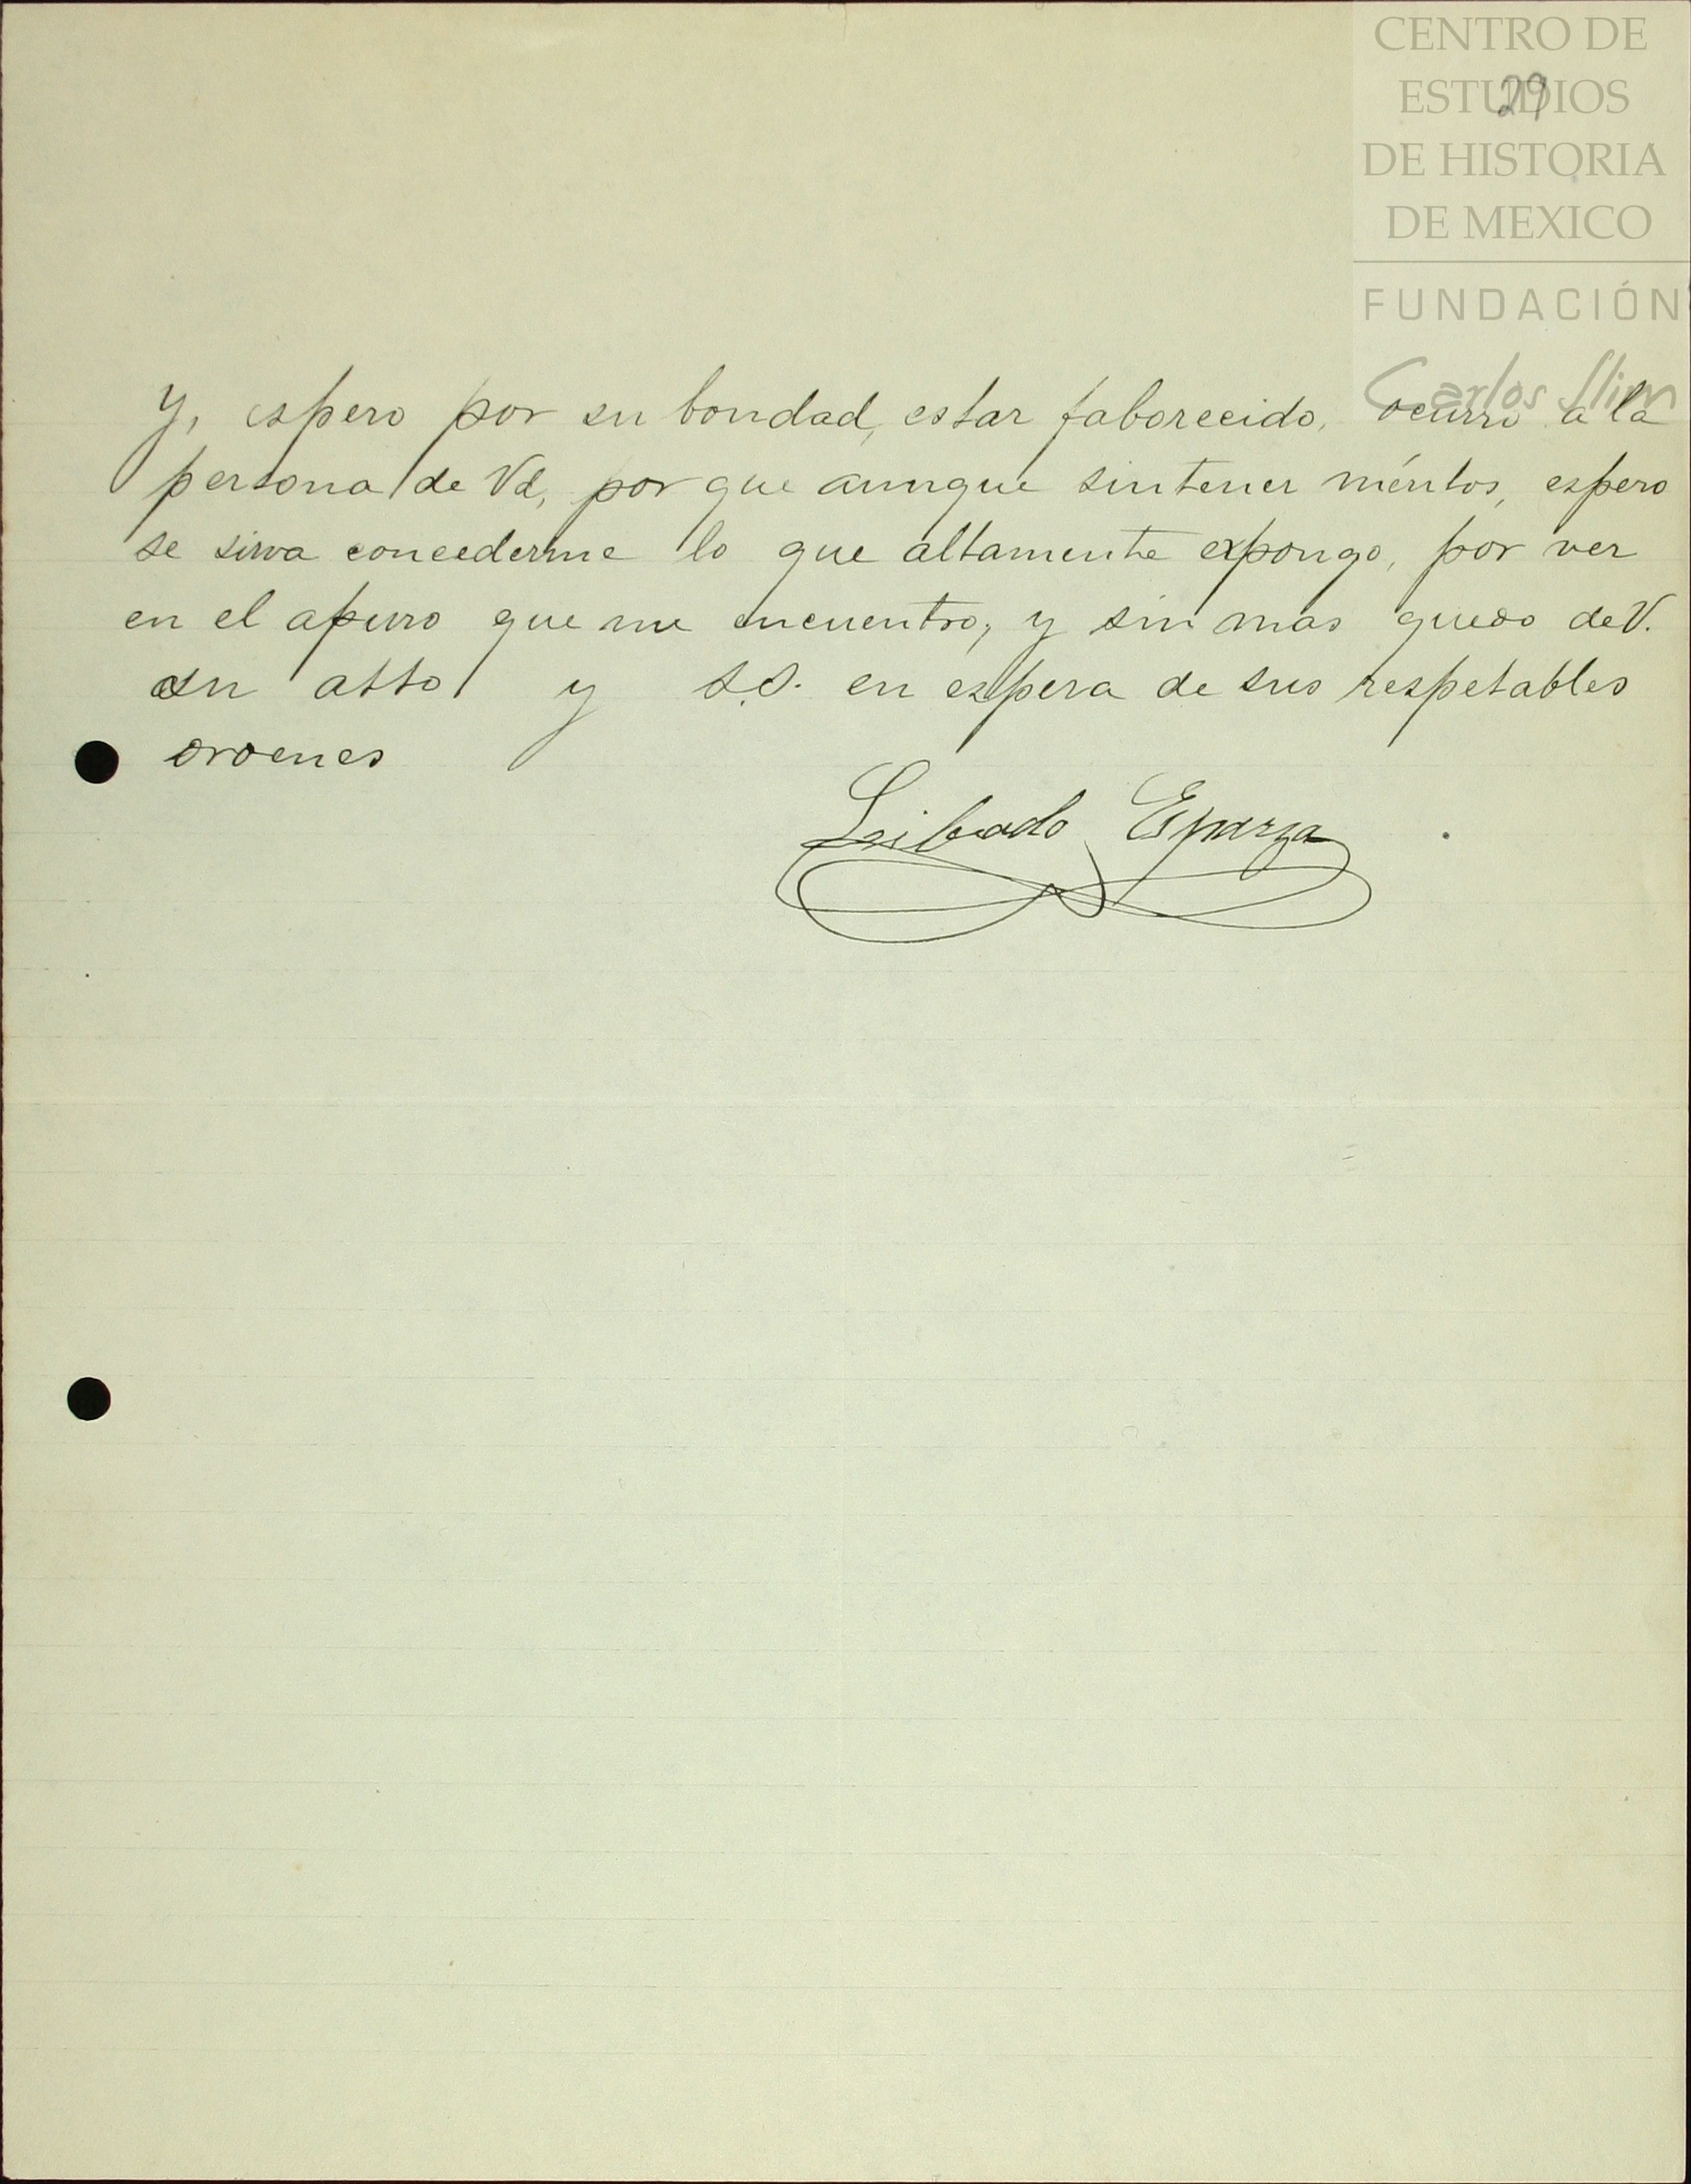 CENTRO DE
ESTUDIOS
29
DE HISTORIA
DE MEXICO
FUNDACIÓN
Carlos Slim
Y, espero por su bondad, estar faborecido, ocurro a la
persona de Vd, por que aunque sin tener méritos, espero
se sirva concederme lo que altamente expongo, por ver
en el apuro que me encuentro, y sin mas quedo de V.
su atto y S.S. en espera de sus respetables
ordenes
Esparza